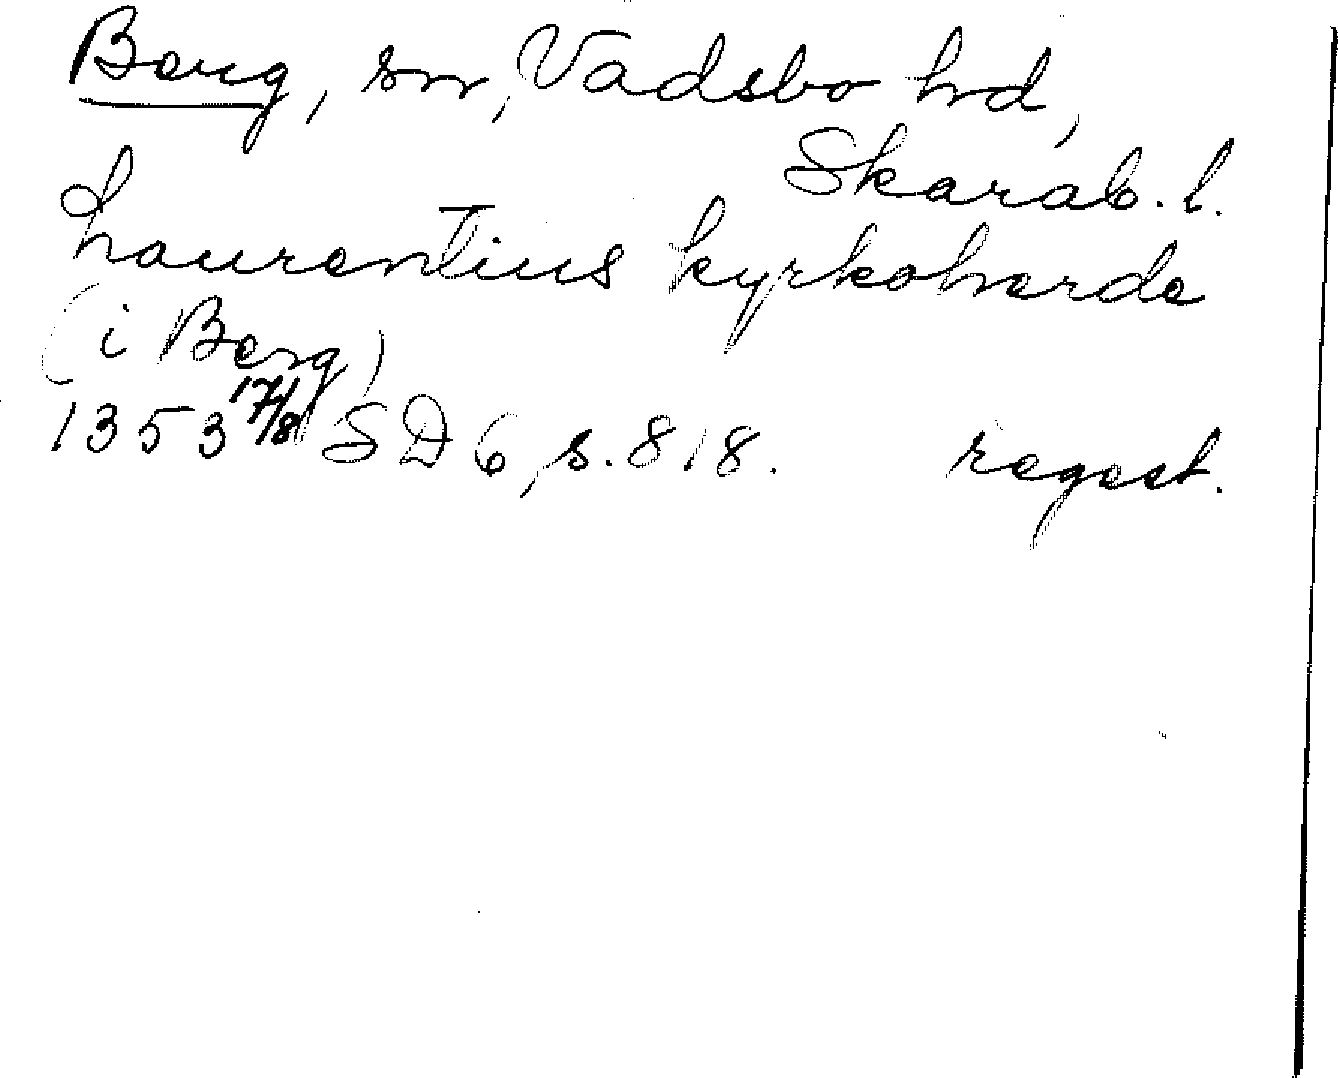 Berg, sn, Vadsbo hd,
Skarab. l.
Laurentius kyrkoherde
(i Berg)
1353 17/8 SD 6, s. 818. regest.